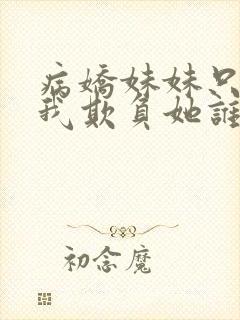 病嬌妹妹只
我欺負她誰
初念魔